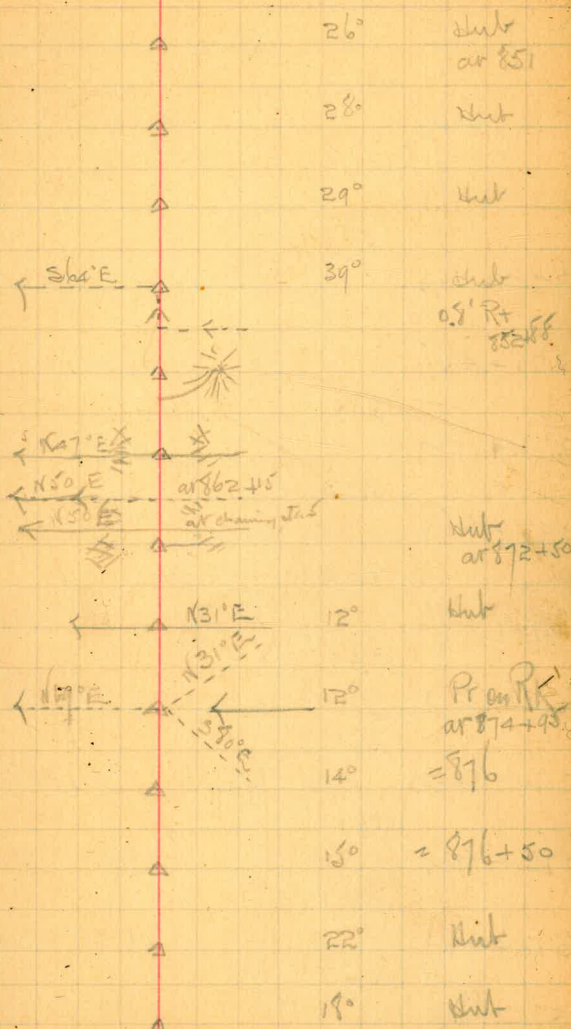 26° Hub
at 851
28° Hub
29° Hub
S64°E 39° Hub
0.8' Rt
852+88
N47°E
N50°E at 862+15
N50°E at chaining
Hub
at 872+50
N31°E 12° Hub
N31°E
12° Pt on Rk
at 874+95
S80°E
14° = 876
15° = 876+50
22° Hub
18° Hub